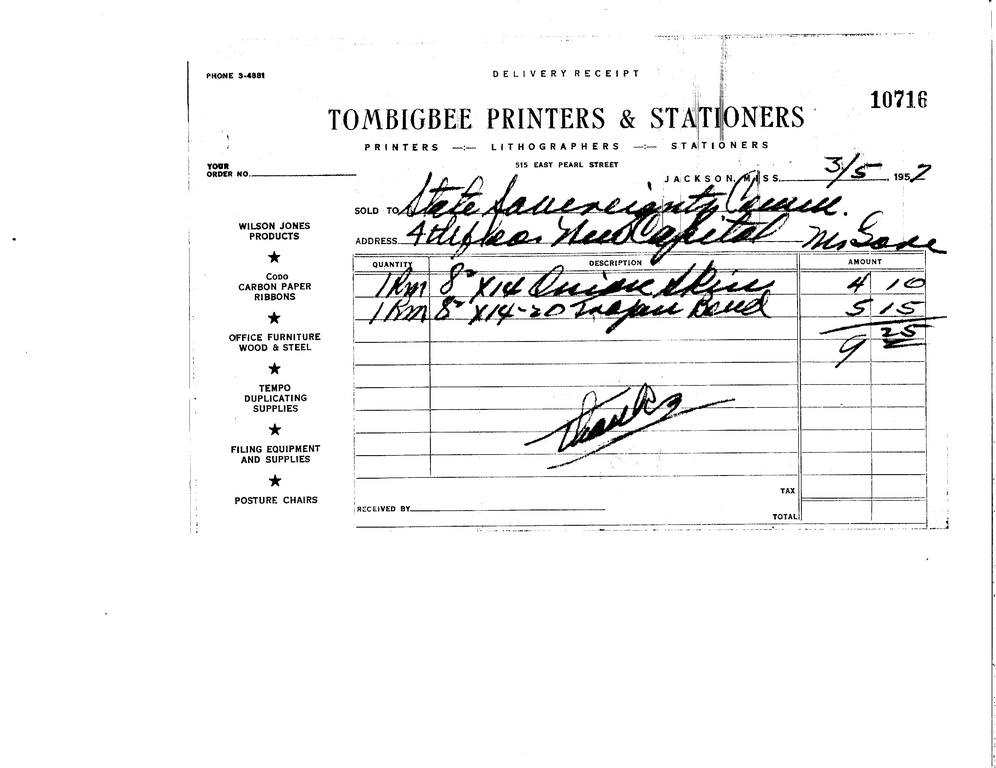 PHONE 3-4881
DELIVERY RECEIPT
10716
TOMBIGBEE PRINTERS & STATIONERS
PRINTERS —:— LITHOGRAPHERS —:— STATIONERS
515 EAST PEARL STREET
YOUR
ORDER NO.
JACKSON, MISS. 3/5, 1957
SOLD TO State Sovereignty Comm.
ADDRESS 4th floor New Capital
WILSON JONES
PRODUCTS
★
CODO
CARBON PAPER
RIBBONS
★
OFFICE FURNITURE
WOOD & STEEL
★
TEMPO
DUPLICATING
SUPPLIES
★
FILING EQUIPMENT
AND SUPPLIES
★
POSTURE CHAIRS
QUANTITY DESCRIPTION AMOUNT
1 Rm 8½ x14 Onion Skin 4 10
1 Rm 8½ x14-20 Trojan Bond 5 15
9 25
Thanks
TAX
RECEIVED BY
TOTAL